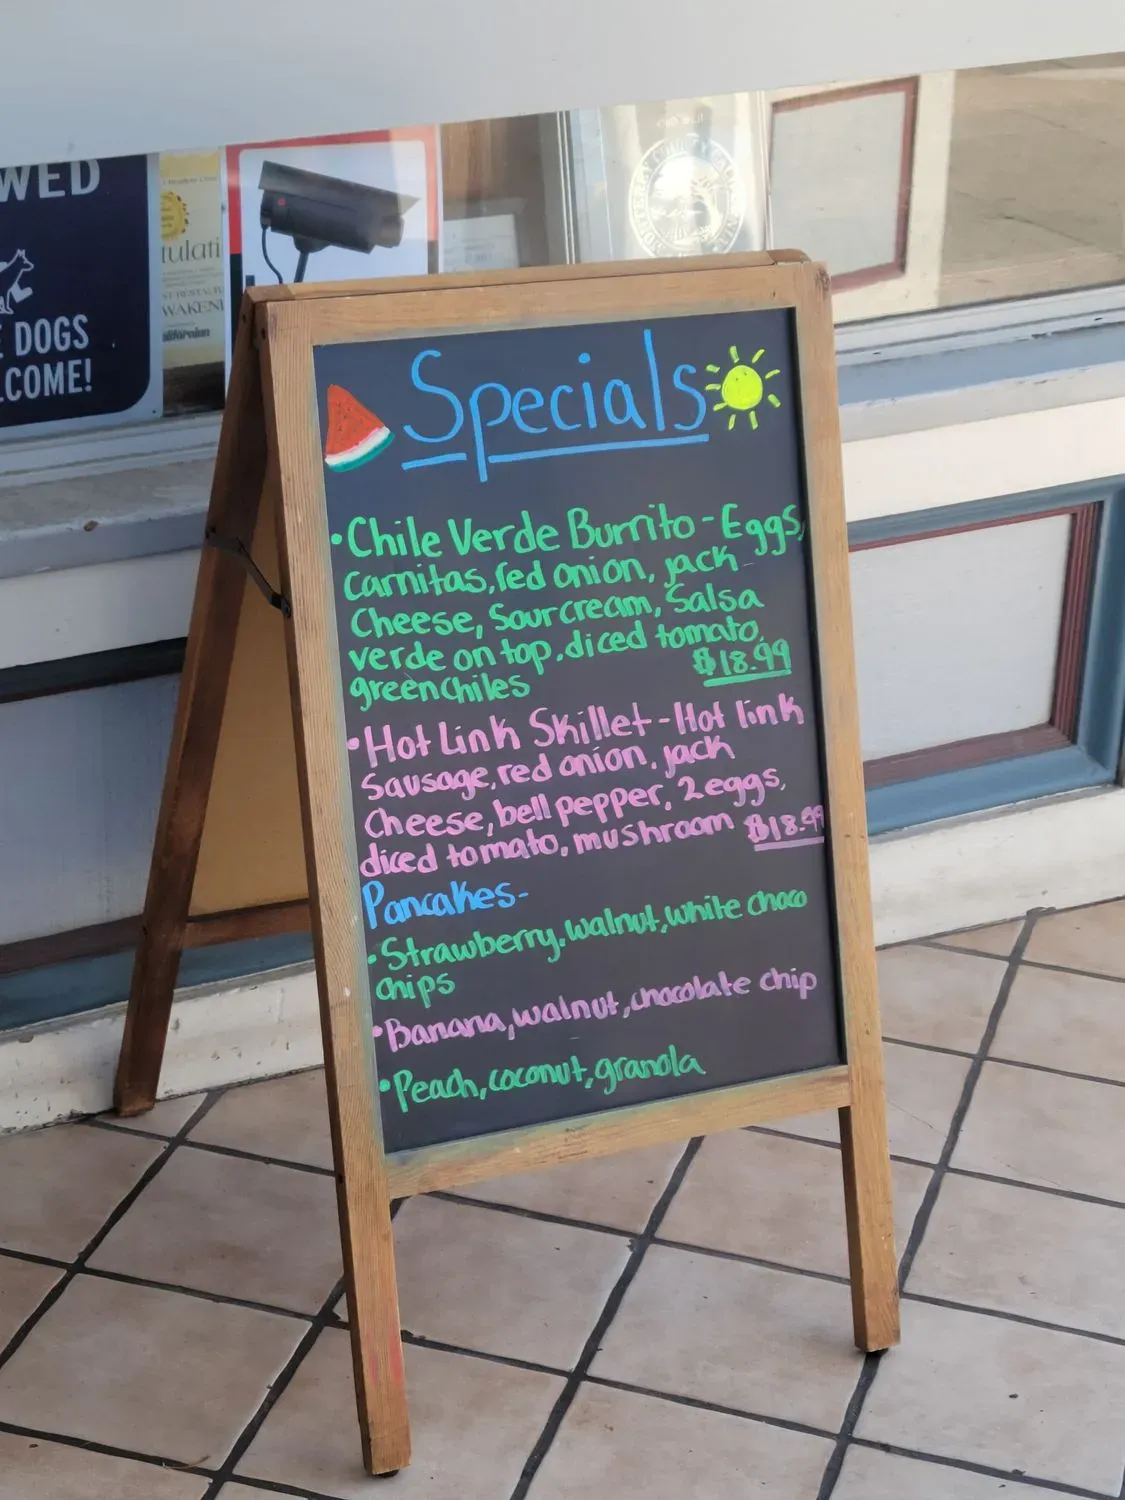 WED
DOGS
COME!
tulati
WAKEN
Specials
•Chile Verde Burrito - Eggs,
carnitas, red onion, jack
Cheese, Sour cream, Salsa
verde on top, diced tomato,
green chiles
$18.99
•Hot Link Skillet - Hot link
Sausage, red onion, jack
Cheese, bell pepper, 2 eggs,
diced tomato, mushroom $18.99
Pancakes-
•Strawberry, walnut, white choco
chips
•Banana, walnut, chocolate chip
•Peach, coconut, granola